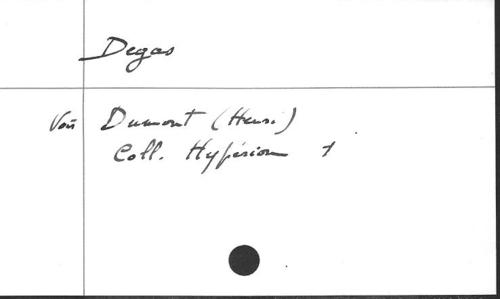 Degas
Voir Dumont (Henri)
Coll. Hypérion 1